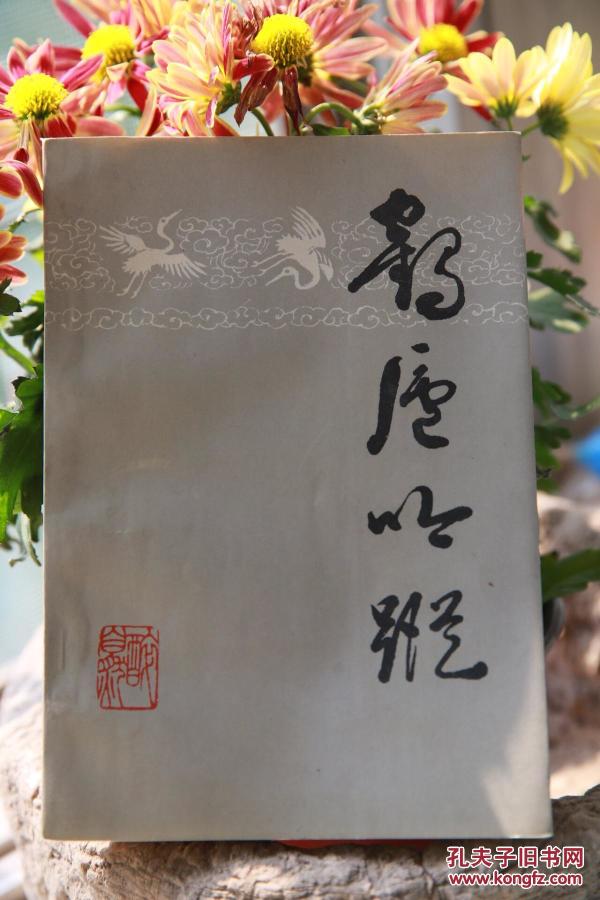 鶴廬吟蹤
孔夫子旧书网
www.kongfz.com